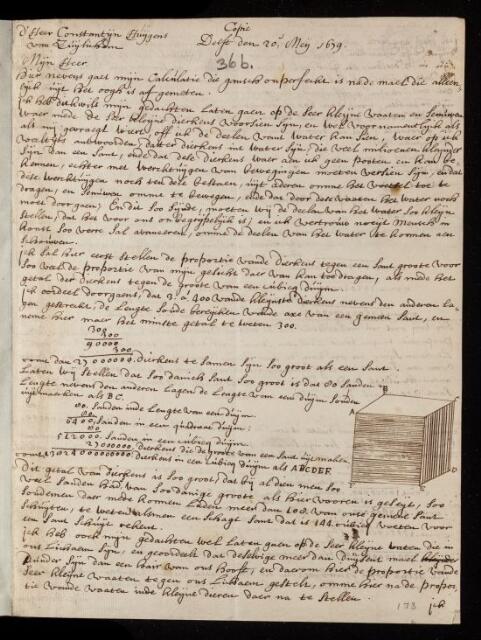 d'Heer Constantijn Huijgens
Copie
van Zuijlichem
Delft den 20.e Meij 1679.
366.
Mijn Heer
hier nevens gaet mijn Calculatie die gansch onperfeckt is nade mael die alleen
lijk uijt het oogh is af gemeten.
ik heb dickwils mijn gedachten laten gaen op de seer kleijne vaaten en senuwen
waer mede de seer kleijne dierkens voorsien sijn, en wel voornamentlijk als
als mij gevraegt wert, off ik de deelen van 't water kan sien, waer op ik
veeltijts antwoorden, dat er dierkens int water sijn, die veel milioenen kleijnder
sijn dan een sant, ende dat dese dierkens waer aen ik geen pooten en kan be
kennen, echter met werktuijgen van beweginge moeten versien sijn, en dat
dese werktuijgen noch ten dele bestaen, uijt aderen omme het voetsel toe te
dragen, en senuwen omme te bewegen, ende dat door dese vaaten het water noch
moet doorgaen; En die soo sijnde, moeten wij de deelen van het water soo kleijn
stellen, dat het voor ons onbegrijpelijk is; en ik vertrouw nooijt mensch in
konst soo verre sal avanceren, omme de deelen van het water te komen aen
schouwen.
ik sal hier eerst stellen de proportie vande dierkens tegen een sant groote voor
soo veel de proportie van mijn gesicht daer van kan toedragen, als mede het
getal der dierkens tegen de groote van een Cubicq duijm.
ik oordeel doorgaens, dat 3. à 400 vande kleijnste dierkens nevens den anderen la
gen gestreckt, de lengte soude bereijken vande axe van een gemeen sant, en
neme hier maer het minste getal te weten 300.
300
300
90000
300
comt dan 27000000. dierkens te samen sijn soo groot als een sant.
Laten wij stellen dat soo danich sant soo groot is dat 80 sanden in
lengte nevens den anderen lagen de lengte van een duijm souden
uijtmaeken als BC.
80. sanden inde lengte van een duijm.
80
6400. sanden in een quadraat duijm.
80
512000. sanden in een cubicq duijm.
27000000. dierkens die de groote van een sant uijt maken
comt 13024000000000. dierkens in een Cubicq duijm als ABCDEF.
B
A
D
Dit getal van dierkens is soo groot, dat bij aldien men soo
veel sanden had, van soodanige groote als hier vooren is geseijt, soo
soudemen daer mede komen laden meer dan 108. van onse gemene sant
schuijten, te weten alsmen een schagt sant dat is 144 cubicq voeten voor
een sant schuijt rekent.
ik heb oock mijn gedachten wel laten gaen op de seer kleijne vaten die in
ons lichaem sijn, en geoordeelt dat deselvige meer dan duijsent mael
dunder sijn dan een hair van ons hooft, en daerom hier de proportie vande
seer kleijne vaaten tegen ons lichaem gestelt, omme hier nade propor
tie vande vaaten inde kleijne dieren daer na te stellen.
178
ik